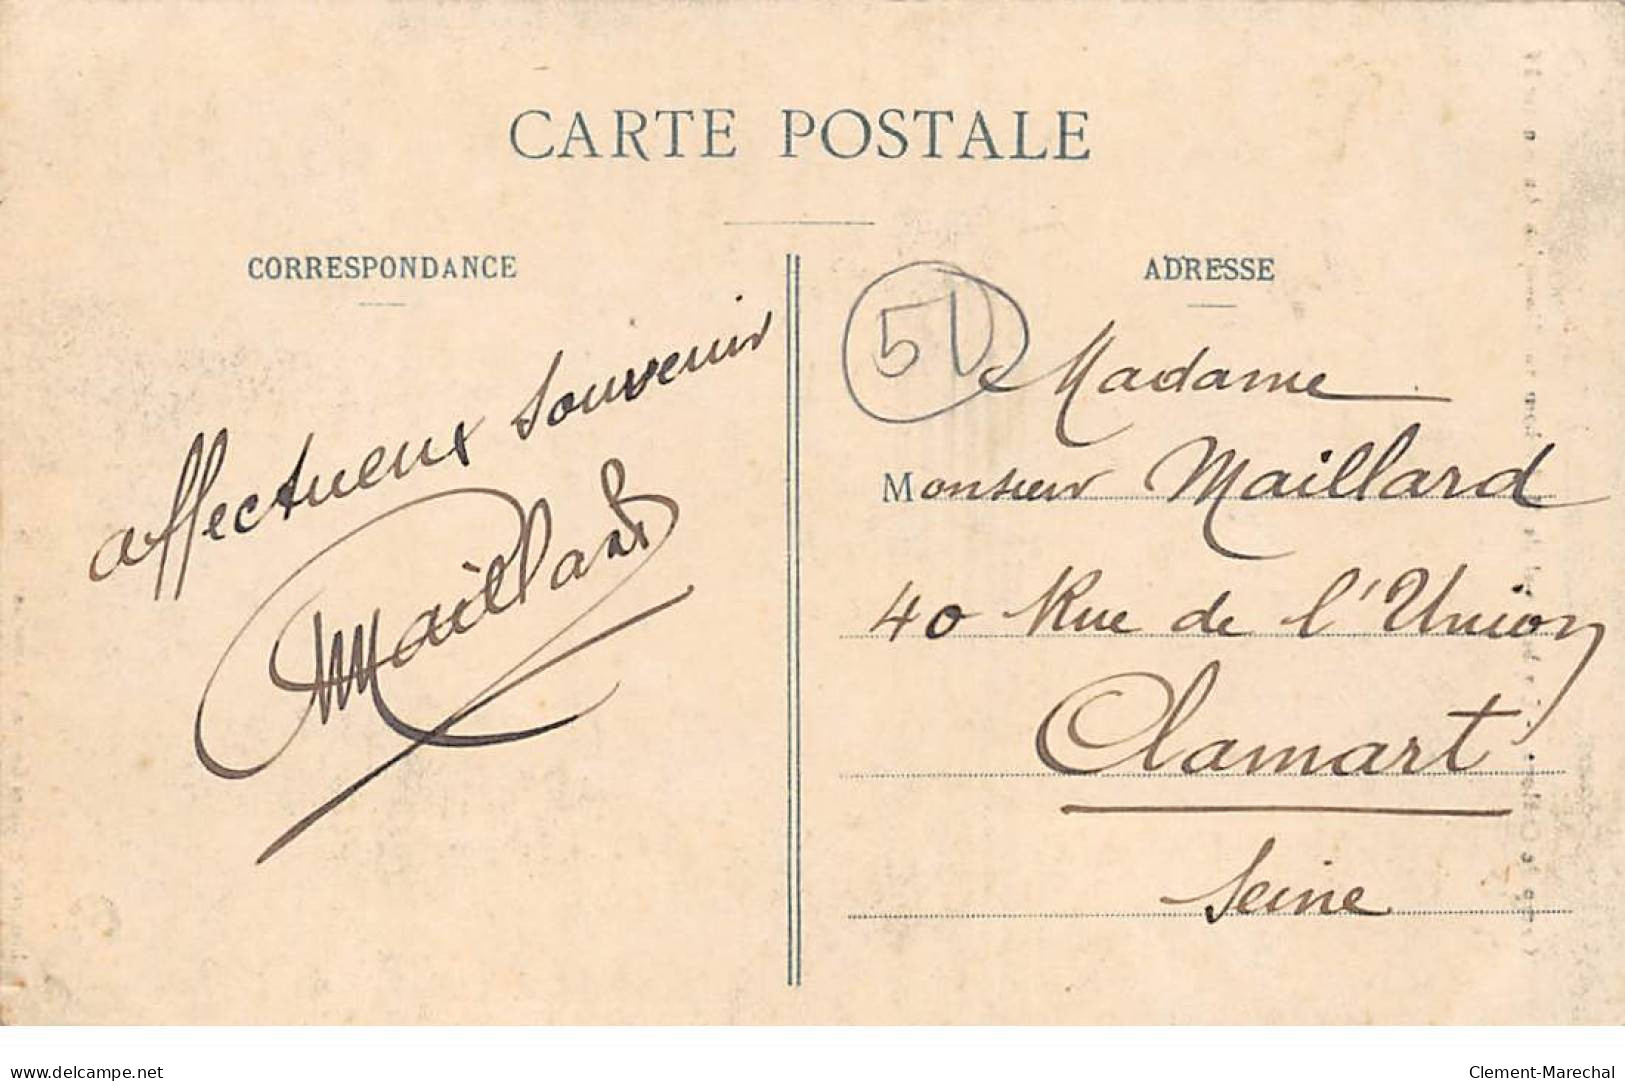 CARTE POSTALE
CORRESPONDANCE
affectueux souvenir
Maillard
ADRESSE
51
Madame
Monsieur Maillard
40 Rue de l'Union
Clamart
Seine
delcampe.net
Clement-Marechal